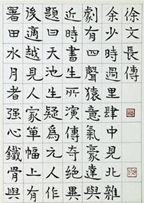 徐文長傳
余少時過里肆中見北雜
劇有四聲猿意氣豪達與
近時書生所演傳奇絕異
題曰天池生疑為元人作
後適越見人家單幅上有
署田水月者強心鐵骨與